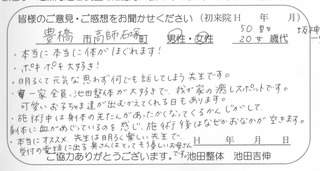 皆様のご意見・ご感想をお聞かせください（初来院日　年　月）
豊橋市高師石塚町　男性・女性　50　20　歳代
・本当に本当に体がほぐれます！
・ボキボキ大好き！
・明るくて元気な思わず何でも話してしまう先生です。
・一家全員、池田整体が大好きで、我が家の癒しスポットです。
可愛いお子ちゃま達が出むかえてくれる日もあります。
・施術中は身体の先たんがあたたかくなってくるかんじがして、
身体に血がめぐっているのを感じ、施術後はなぜかおなかが空きます。
・本当にオススメ、先生は明るく楽しい先生で　日　年　月　日
受付の電話に出る奥さんはとっても優しい奥さんです。
ご協力ありがとうございます。池田整体　池田吉伸